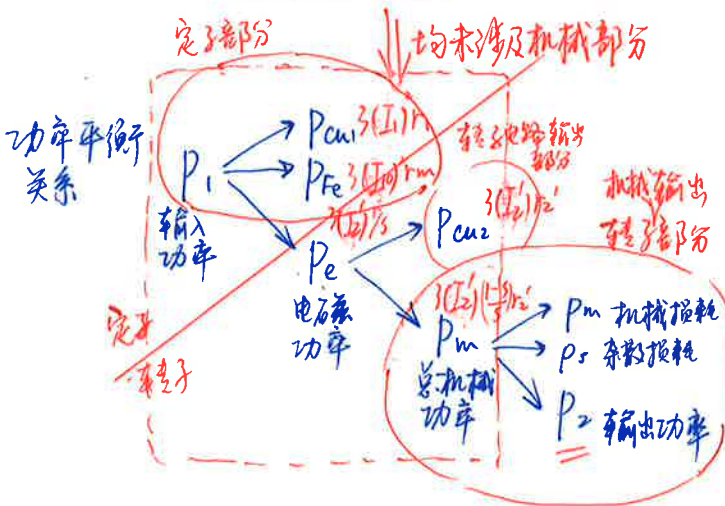 定子部分
均未涉及机械部分
功率平衡
关系
P1
输入
功率
Pcu1 3(I1)²r1
PFe 3(I0)²rm
3(I2')²r2'/s
转子电路输出
部分
Pcu2 3(I2')²r2'
机械输出
转子部分
Pe
电磁
功率
定子
转子
3(I2')²(1-s/s)r2'
Pm
总机械
功率
pm 机械损耗
ps 杂散损耗
P2 输出功率